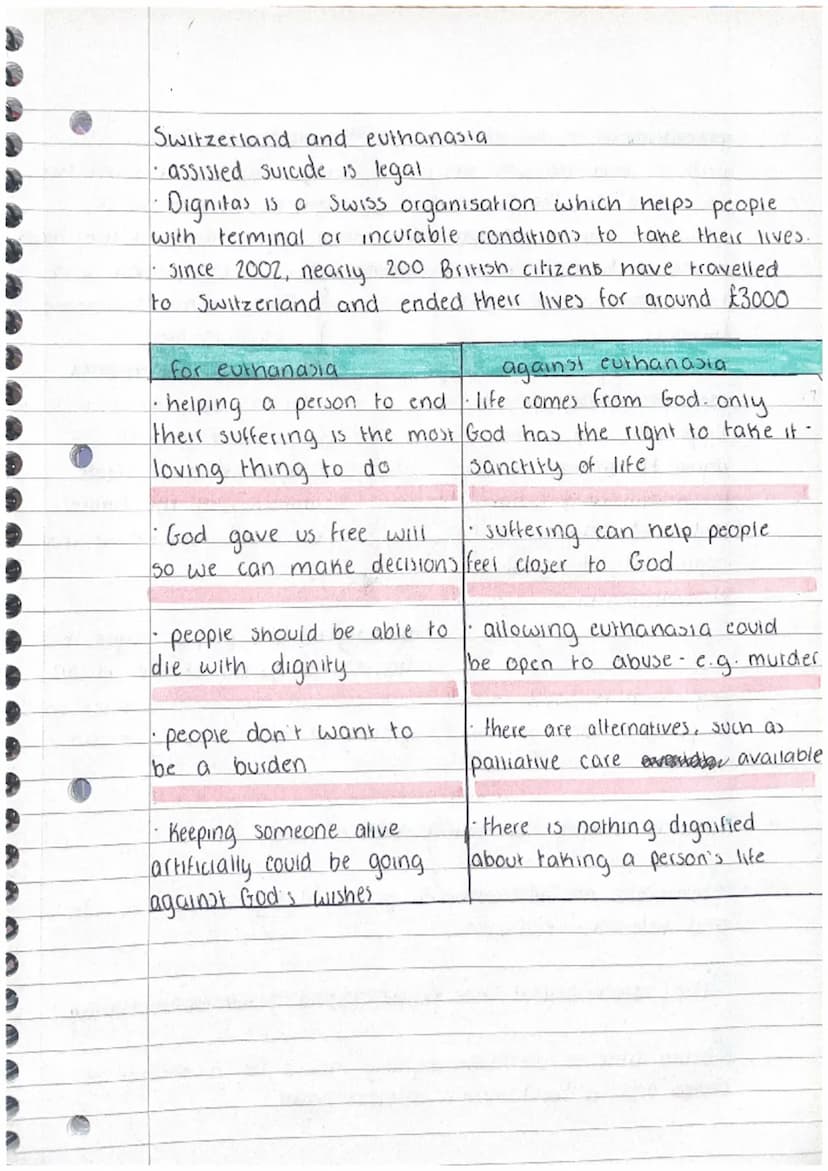 Switzerland and euthanasia
· assisted suicide is legal
· Dignitas is a Swiss organisation which helps people
with terminal or incurable conditions to take their lives.
· since 2002, nearly 200 British citizens have travelled
to Switzerland and ended their lives for around £3000
for euthanasia
· helping a person to end
their suffering is the most
loving thing to do
· God gave us free will
so we can make decisions
· people should be able to
die with dignity
· people don't want to
be a burden
· Keeping someone alive
artificially could be going
against God's wishes
against euthanasia
· life comes from God. only
God has the right to take it -
sanctity of life
· suffering can help people
feel closer to God
· allowing euthanasia could
be open to abuse - e.g. murder
· there are alternatives, such as
palliative care available
· there is nothing dignified
about taking a person's life